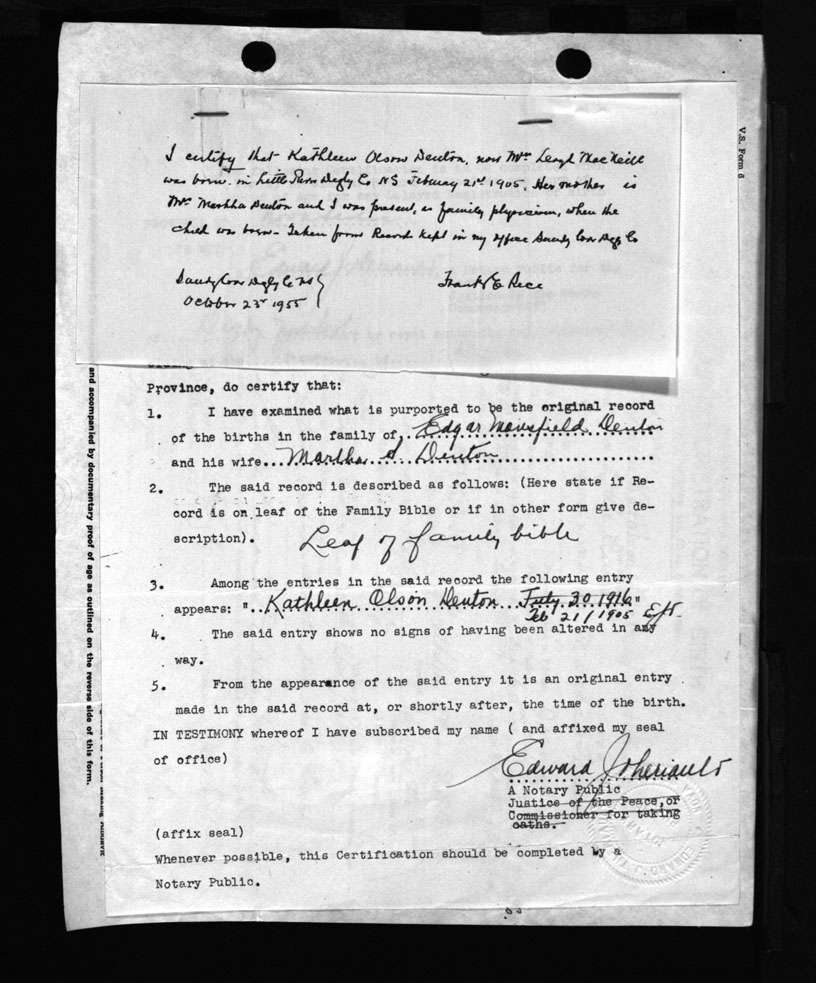 I certify that Kathleen Olson Denton, now Mrs Lloyd MacNeill
was born in Little River Digby Co NS February 21st 1905. Her mother is
Mrs Martha Denton and I was present, as family physician, when the
child was born - Taken from Records kept in my office Sandy Cove Digby Co
Sandy Cove Digby Co NS
October 23rd 1955
Frank E Rice
Province, do certify that:
1. I have examined what is purported to be the original record
of the births in the family of Edgar Mansfield Denton
and his wife...Martha A. Denton
2. The said record is described as follows: (Here state if Re-
cord is on leaf of the Family Bible or if in other form give de-
scription). Leaf of family bible
3. Among the entries in the said record the following entry
appears: "..Kathleen Olson Denton July 30, 1916"
Feb 21/1905 EJT.
4. The said entry shows no signs of having been altered in any
way.
5. From the appearance of the said entry it is an original entry
made in the said record at, or shortly after, the time of the birth.
IN TESTIMONY whereof I have subscribed my name ( and affixed my seal
of office)
Edward J Theriault
A Notary Public
Justice of the Peace, or
Commissioner for taking
oaths.
(affix seal)
Whenever possible, this Certification should be completed by a
Notary Public.
V.S. Form 6
and accompanied by documentary proof of age as outlined on the reverse side of this form.